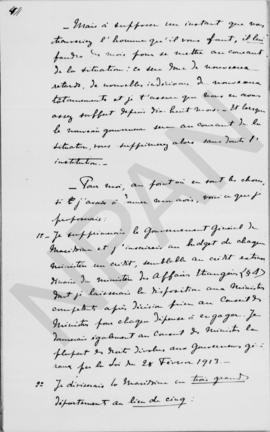 4
— Mais à supposer un instant que vous
trouveriez l'homme qu'il vous faut, il lui
faudra des mois pour se mettre au courant
de la situation ; ce sera donc de nouveaux
retards, de nouvelles indécisions, de nouveaux
tâtonnements et je t'assure que nous en avons
assez souffert depuis dix huit mois. — Et lorsque
le nouveau gouverneur sera au courant de la
situation, vous supprimerez alors sans doute l'
institution.
— Pour moi, au point où en sont les choses,
si j'avais à émettre mon avis, voici ce que je
proposerais :
1º- Je supprimerais le Gouvernement Général de
Macédoine et j'inscrirais au budget de chaque
Ministère un crédit, semblable au crédit extra
ordinaire du ministère des Affaires Etrangères
dont je laisserais la disposition aux Ministres
compétents après décision prise au Conseil des
Ministres pour chaque dépense à engager. Je
donnerais également au Conseil des Ministres la
plupart des droits dévolus aux Gouverneurs géné
raux par la loi du 28 Février 1913. —
2º Je diviserais la Macédoine en trois grands
départements au lieu de cinq :
NPAN